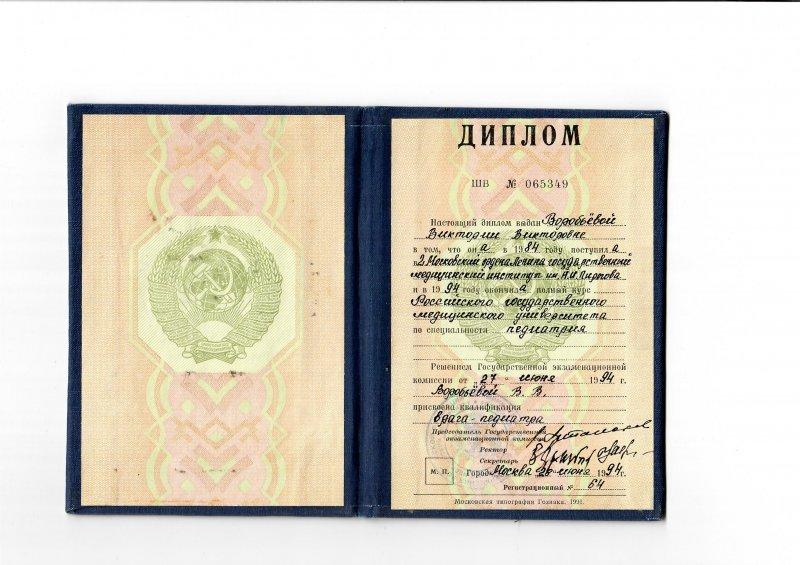 ДИПЛОМ
ШВ № 065349
Настоящий диплом выдан Воробьёвой
Виктории Викторовне
в том, что она в 1984 году поступила
в 2 Московский ордена Ленина государственный
медицинский институт им. Н.И. Пирогова
и в 1994 году окончила полный курс
Российского государственного
медицинского университета
по специальности педиатрия
Решением Государственной экзаменационной
комиссии от „27" июня 1994 г.
Воробьёвой В. В.
присвоена квалификация
врача-педиатра
Председатель Государственной
экзаменационной комиссии
Ректор
Секретарь
М. П. Город Москва июня 1994 г.
Регистрационный № 64
Московская типография Гознака. 1991.